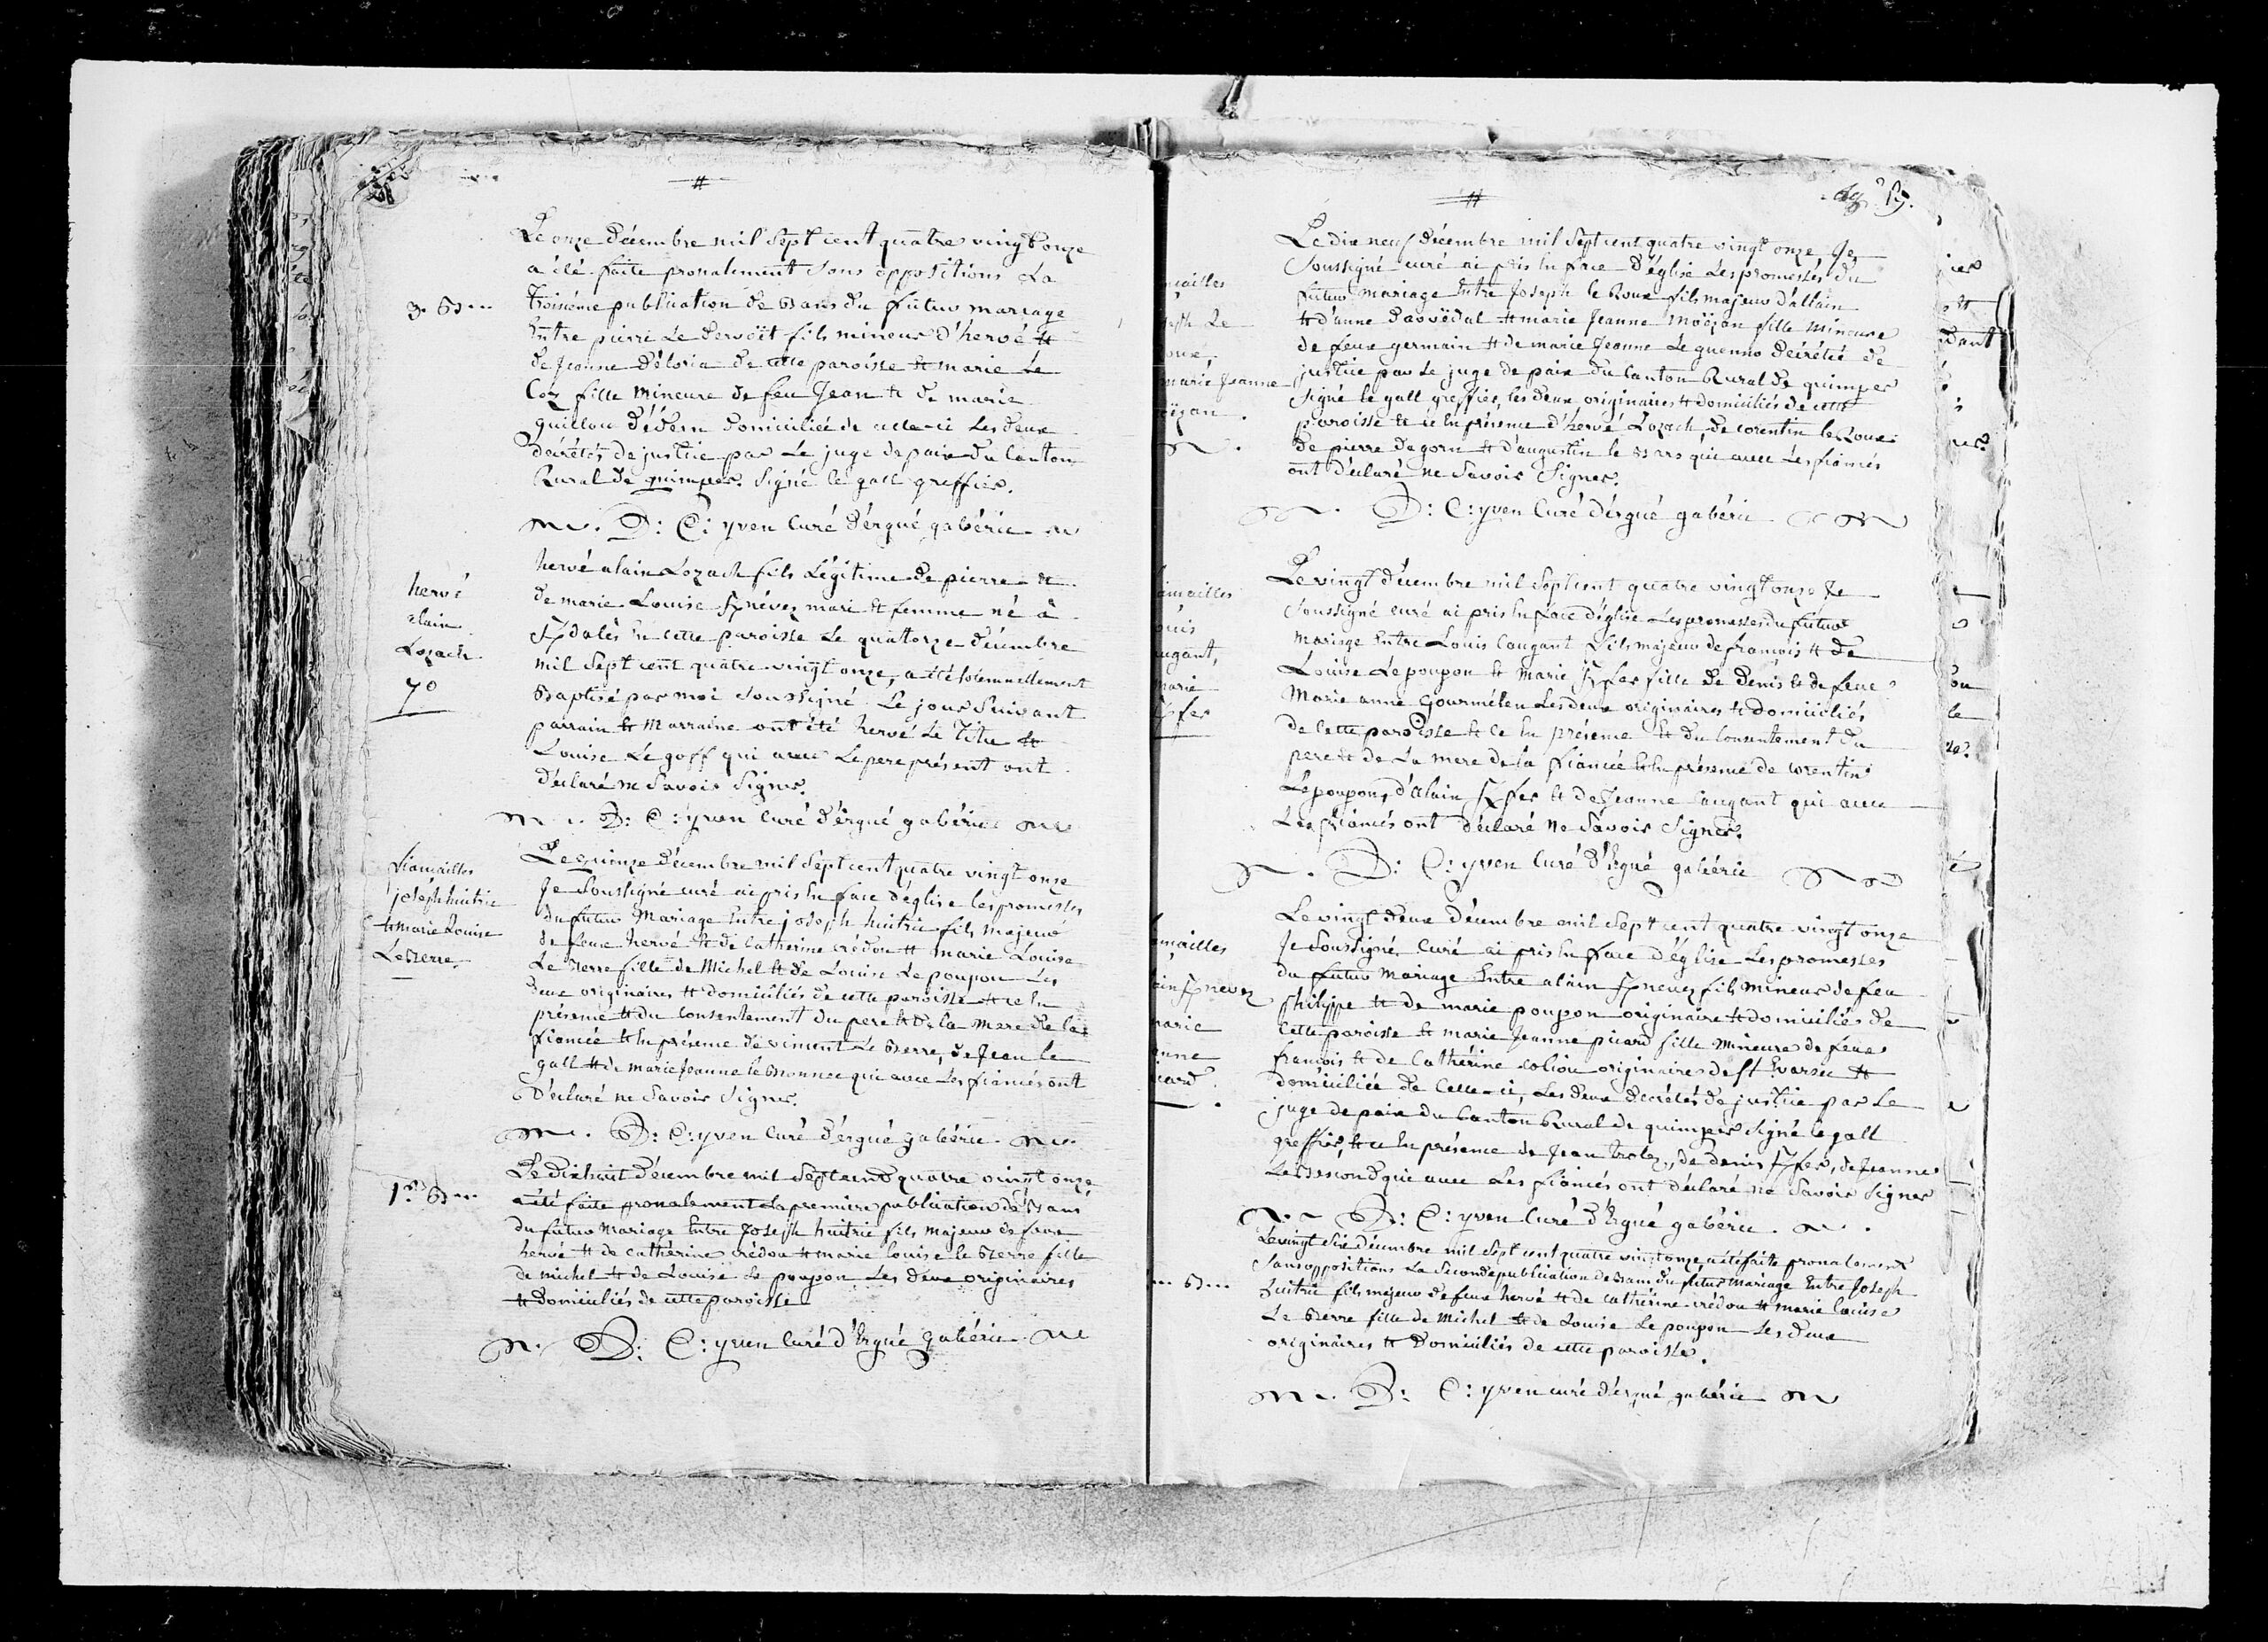 3. B...
Le onze décembre mil sept cent quatre vingt onze
a été faite pronalement sans oppositions La
troisiéme publication de Bans du futur mariage
Entre pierre Le Dervoët fils mineur d'hervé et
de Jeanne Déloria de cette paroisse et marie Le
Coz fille mineure de feu Jean et de marie
guillou d'édern domiciliée de celle-ci Les deux
décrétés de justice par Le juge de paix du Canton
Rural de quimper. Signé le gall greffier.
D: C: yven Curé d'ergué gabéric
hervé
alain
Lozach
7°
hervé alain Lozach fils Légitime de pierre et
de marie Louise Knévez mari et femme né à
Kdalès En cette paroisse Le quatorze décembre
mil Sept cent quatre vingt onze, a été solemnellement
Baptisé par moi soussigné Le jour Suivant
parrain et Marraine ont été hervé Le Titu et
Louise Le goff qui avec Le pere présent ont
déclaré ne Savoir Signer.
D: C: yven Curé d'érgué gabéric
fiancailles
joseph huitric
et marie Louise
Le Berre.
Le quinze décembre mil Sept cent quatre vingt onze
Je Soussigné curé ai pris En face d'église les promesses
du futur Mariage Entre joseph huitric fils majeur
de feux hervé et de Catherine crédou et marie Louise
Le Berre fille de Michel et de Louise Le poupon Les
deux originaires et domiciliés de cette paroisse et ce En
présence et du Consentement du pere et de la mere de la
fiancée et En présence de vincent Le Berre, de Jean le
gall et de marie Jeanne le Bronnec qui avec Les fiancés ont
déclaré ne Savoir Signer.
D: C: yven Curé d'ergué gabéric
1re B...
Le dixhuit décembre mil Sept cent quatre vingt onze
a été faite pronalement La premiere publication de Bans
du futur Mariage Entre Joseph huitric fils Majeur de feux
hervé et de Cathérine crédou et marie Louise le Berre fille
de michel et de Louise Le poupon Les deux originaires
et domiciliés de cette paroisse
D: C: yven Curé d'Ergué gabéric
19.
ncailles
seph Le
oux,
marie Jeanne
oëzan.
Le dix neuf décembre mil Sept cent quatre vingt onze, Je
Soussigné curé ai pris En face d'église Les promesses du
futur Mariage Entre Joseph le Roux fils majeur d'allain
et d'anne Davvédal et marie Jeanne Moëzan fille mineure
de feux germain et de marie Jeanne Le guenno décrétée de
justice par Le juge de paix du Canton Rural de quimper
Signé le gall greffier, les deux originaires et domiciliés de cette
paroisse et ce En présence d'hervé Lozach, de corentin le Roux
de pierre dagorn et d'augustin le Bars qui avec Les fiancés
ont déclaré ne Savoir Signer.
D: C: yven Curé d'érgué gabéric
ancailles
ouis
augant,
marie
Kfer
Le vingt décembre mil Sept cent quatre vingt onze Je
Soussigné curé ai pris En face d'église Les promesses du futur
Mariage Entre Louis Caugant fils majeur de françois et de
Louise Le poupon et Marie Kfer fille de Denis et de feue
Marie anne Gourmélen Les deux originaires et domiciliés
de Cette paroisse et ce En présence et du Consentement du
pere et de La mere de la fiancée et En présence de corentin
Le poupon, d'alain Kfer et de Jeanne Caugant qui avec
Les fiancés ont déclaré ne Savoir Signer.
D: C: yven Curé d'Ergué gabéric
ancailles
ain Knevez
marie
anne
icard.
Le vingt deux décembre mil Sept cent quatre vingt onze
Je Soussigné Curé ai pris En face d'église Les promesses
du futur Mariage Entre alain Knevez fils mineur de feu
philippe et de marie poupon originaire et domiciliés de
Cette paroisse et marie Jeanne picard fille mineure de feux
françois et de Cathérine coliou originaires de St Evarzec et
domiciliée de Celle-ci, Les deux décrétés de justice par Le
juge de paix du Canton Rural de quimper Signé le gall
greffier, et ce En présence de Jean Trolez, de denis Kfer, de Jeanne
Le Bescond qui avec Les fiancés ont déclaré ne Savoir Signer
D: C: yven Curé d'Ergué gabéric.
B...
Le vingt Six décembre mil Sept cent quatre vingt onze a été faite pronalement
Sans oppositions La Seconde publication de Bans du futur Mariage Entre Joseph
huitric fils majeur de feux hervé et de Cathérine crédou et marie Louise
Le Berre fille de Michel et de Louise Le poupon Les deux
originaires et domiciliés de cette paroisse.
D: C: yven curé d'ergué gabéric